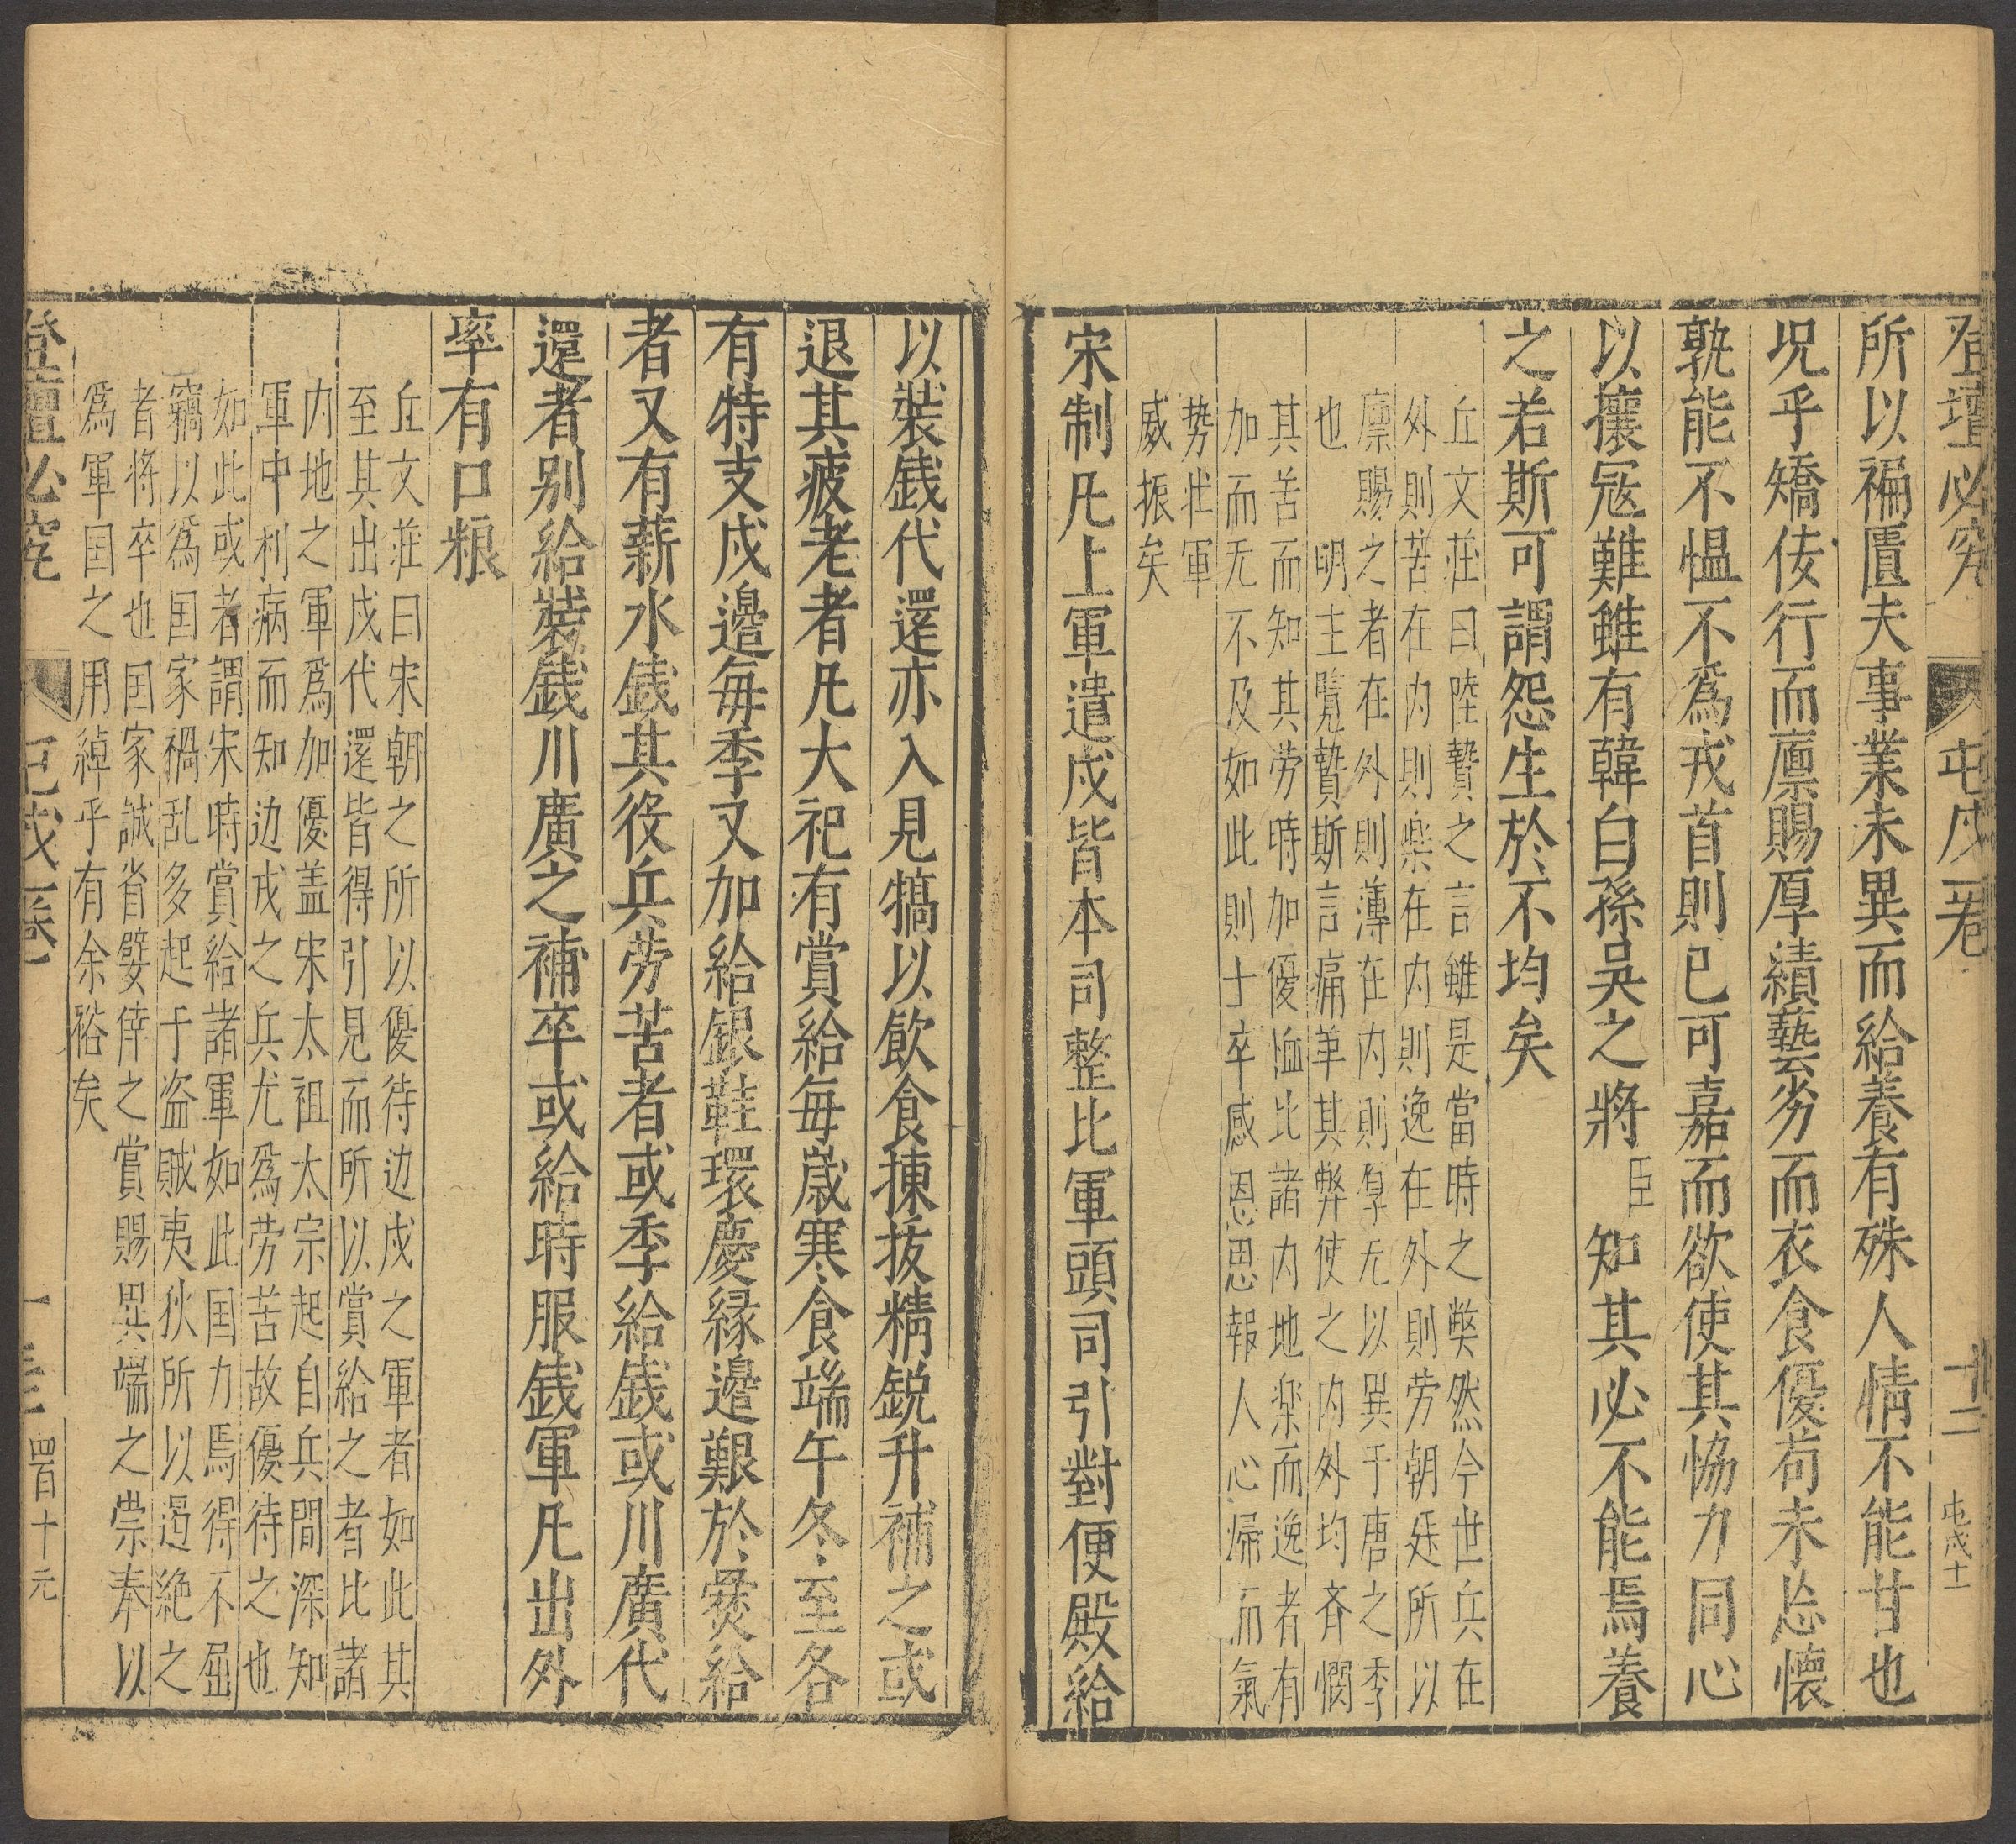 登壇必究 屯戍一卷 十二 屯戍十一
所以褊匱夫事業未異而給養有殊人情不能甘也
况乎矯佞行而廪賜厚績藝劣而衣食優苟未忘懷
孰能不愠不爲戎首則已可嘉而欲使其恊力同心
以攘冦難雖有韓白孫吴之將臣知其必不能焉養
之若斯可謂怨生於不均矣
丘文莊曰陸贄之言雖是當時之弊然今世兵在
外則苦在内則楽在内則逸在外則労朝廷所以
廪賜之者在外則薄在内則厚无以異于唐之季
也 明主覧贄斯言痛革其弊使之内外均斉憫
其苦而知其劳時加優恤比諸内地楽而逸者有
加而无不及如此則士卒感恩思報人心帰而氣
势壮軍
威振矣
宋制凡上軍遣戍皆本司整比軍頭司引對便殿給
以裝銭代還亦入見犒以飲食揀拔精鋭升補之或
退其疲老者凡大祀有賞給每歳寒食端午冬至各
有特支戍邊每季又加給銀鞋環慶縁邊艱於爨給
者又有薪水銭其役兵劳苦者或季給銭或川廣代
還者别給裝銭川廣之補卒或給時服銭軍凡出外
率有口粮
丘文莊曰宋朝之所以優待边戍之軍者如此其
至其出戍代還皆得引見而所以賞給之者比諸
内地之軍爲加優盖宋太祖太宗起自兵間深知
軍中利病而知边戍之兵尤爲劳苦故優待之也
如此或者謂宋時賞給諸軍如此国力焉得不屈
竊以爲国家禍乱多起于盗賊夷狄所以遏絶之
者将卒也国家誠省嬖倖之賞賜異端之崇奉以
爲軍国之用綽乎有余裕矣
登壇必究 屯戍一卷 四百十元